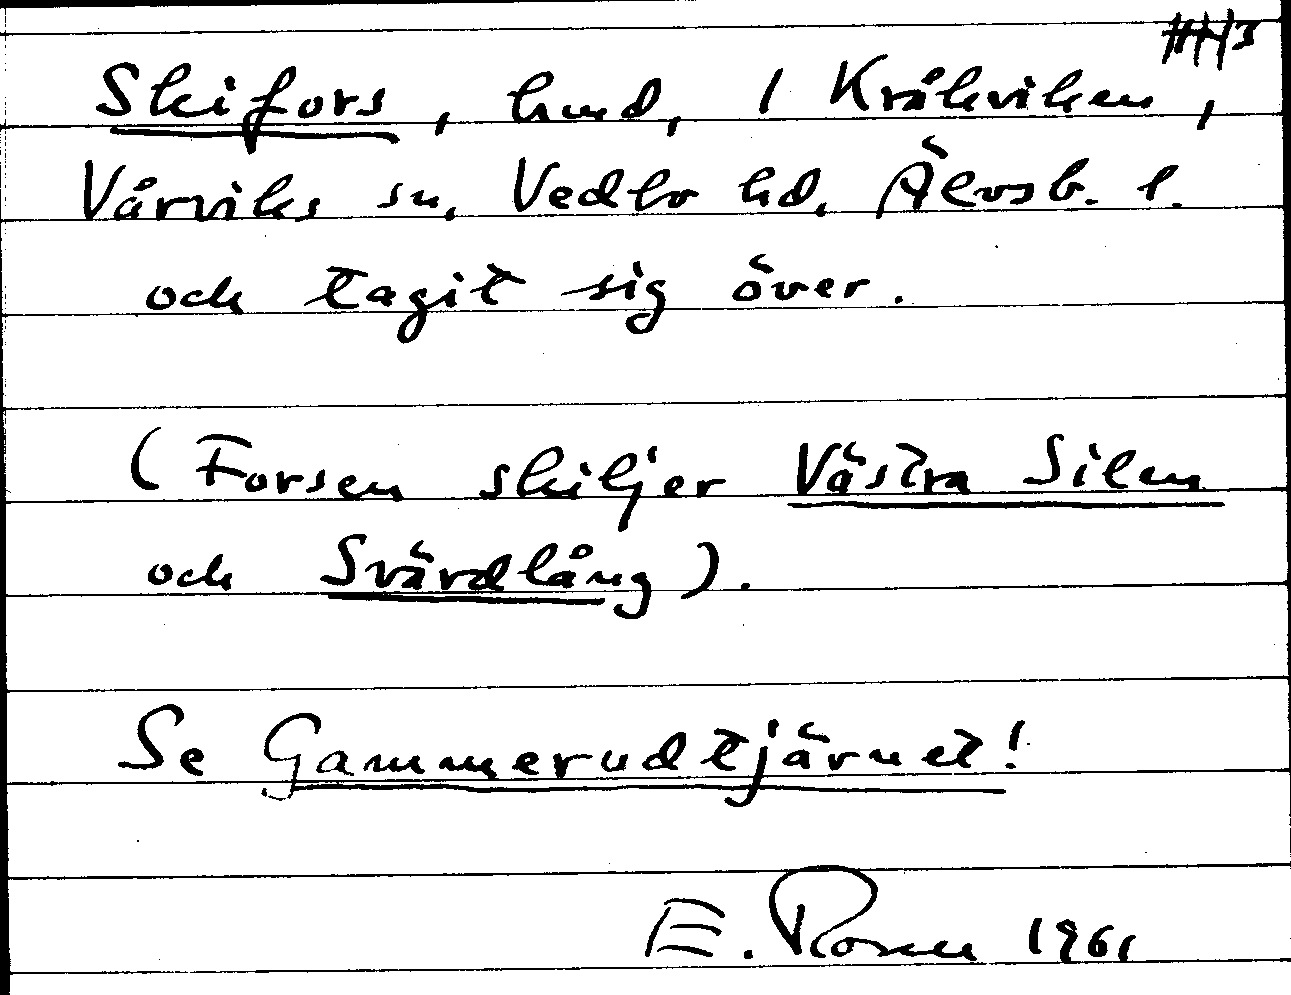 Skifors, hmd, / Kråkviken,
Vårviks sn, Vedbo hd, Älvsb. l.
och tagit sig över.
(Forsen skiljer Västra Silen
och Svärdlång).
Se Gammerudtjärnet!
E. Rosen 1961